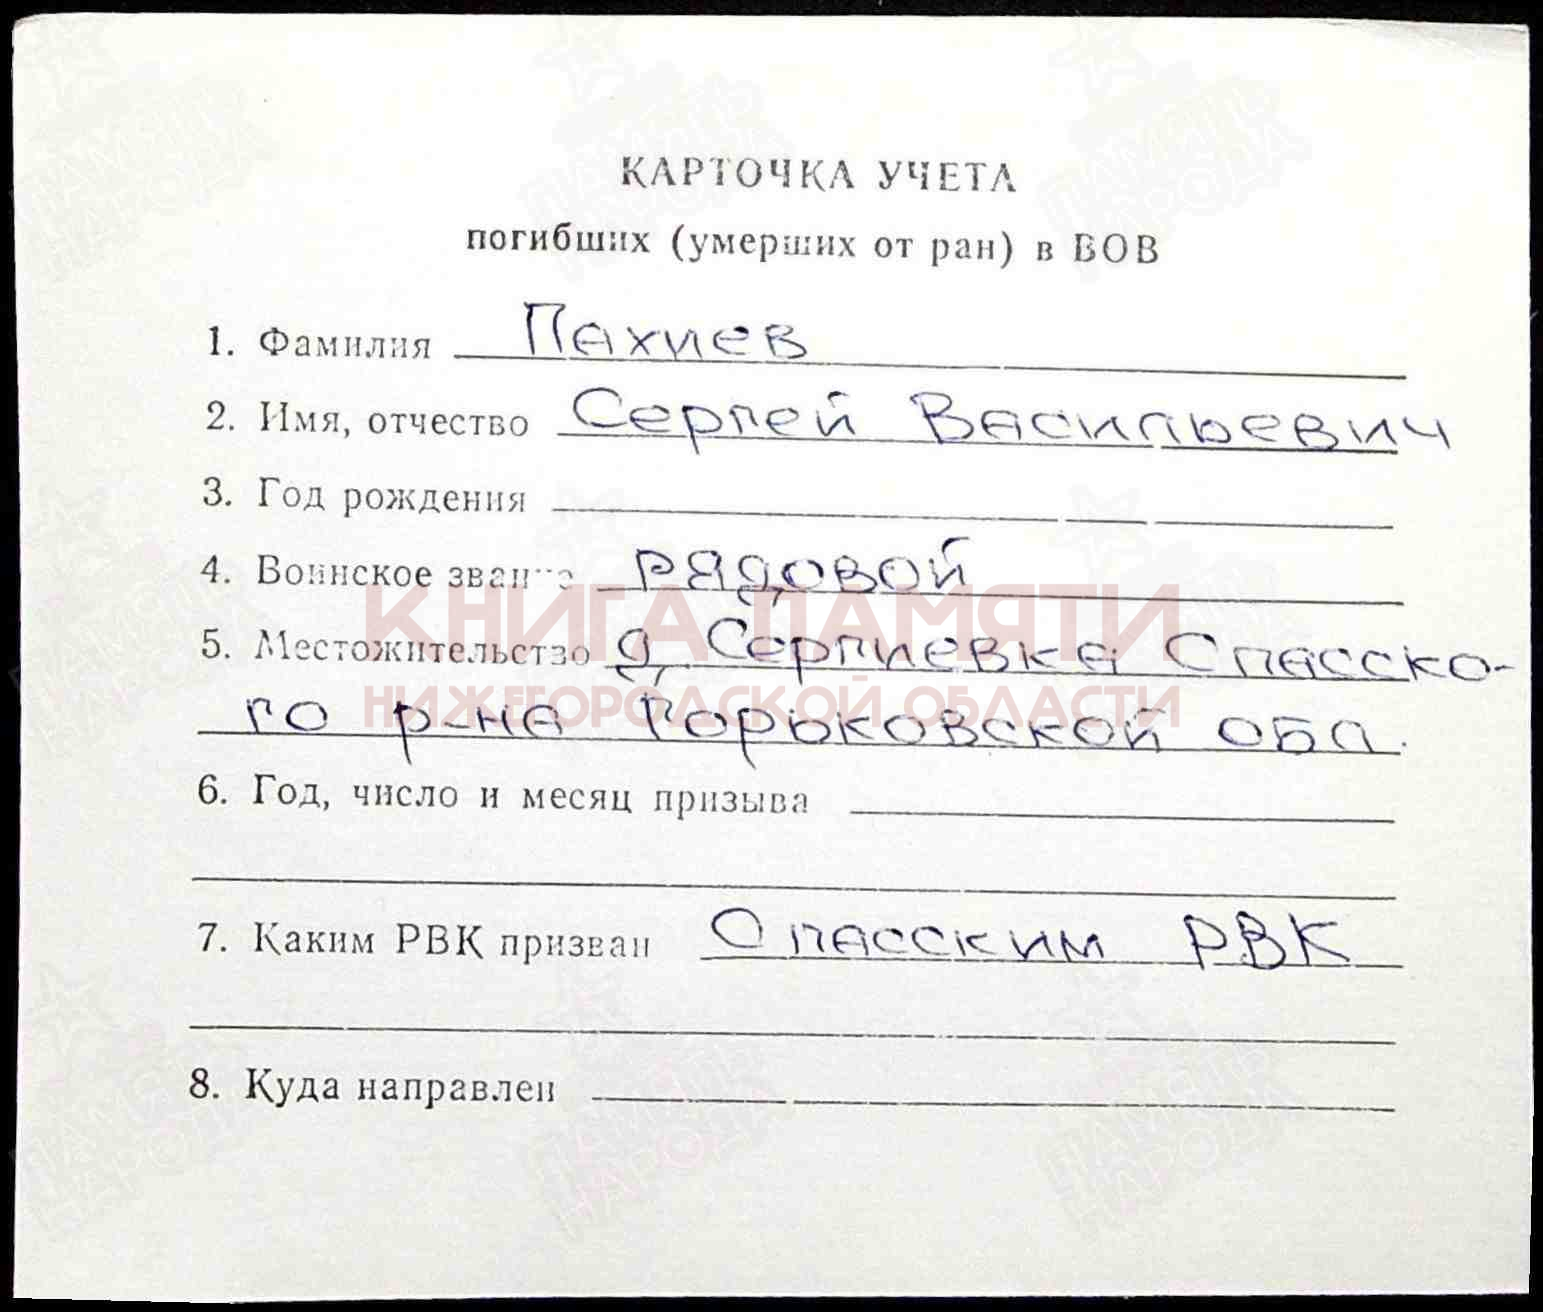 КАРТОЧКА УЧЕТА
погибших (умерших от ран) в ВОВ
1. Фамилия Пахиев
2. Имя, отчество Сергей Васильевич
3. Год рождения
4. Воинское звание рядовой
КНИГА ПАМЯТИ
5. Местожительство д. Сергиевка Спасско-
НИЖЕГОРОДСКОЙ ОБЛАСТИ
го р-на Горьковской обл.
6. Год, число и месяц призыва
7. Каким РВК призван Спасским РВК
8. Куда направлен
ПАМЯТЬ НАРОДА